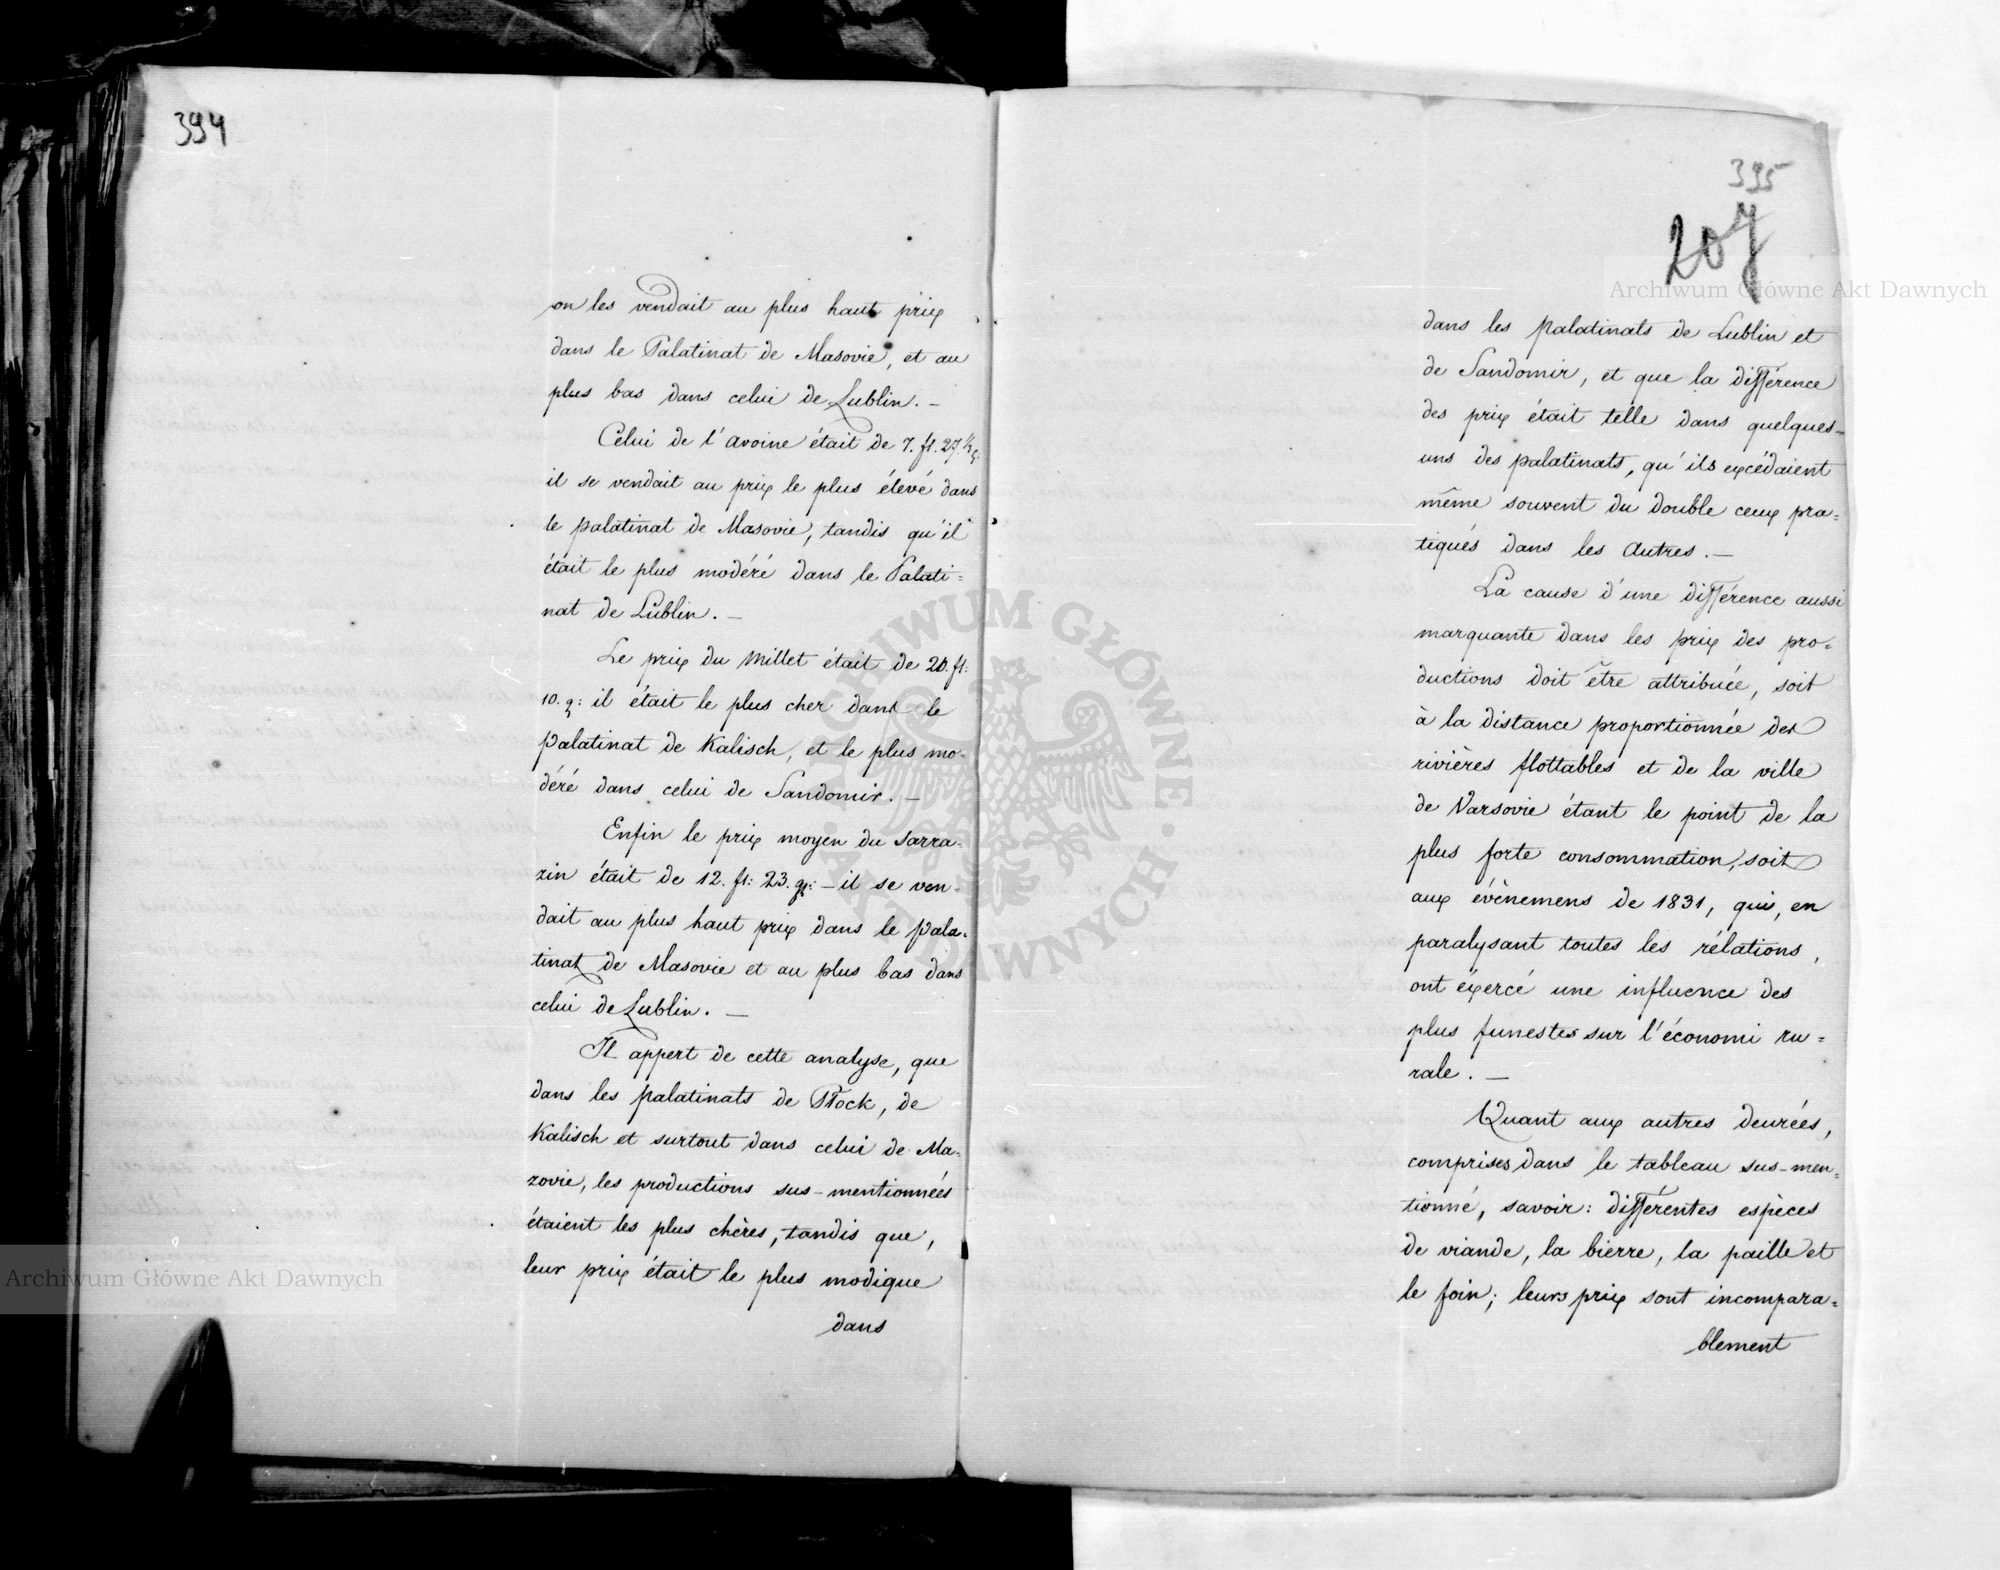 394
on les vendait au plus haut prix
dans le Palatinat de Masovie, et au
plus bas dans celui de Lublin. —
Celui de l'avoine était de 7. fl. 27 1/2 g:
il se vendait au prix le plus élevé dans
le palatinat de Masovie, tandis qu'il
était le plus modéré dans le Palati=
nat de Lublin. —
Le prix du Millet était de 20. fl:
10. g: il était le plus cher dans le
Palatinat de Kalisch, et le plus mo-
déré dans celui de Sandomir. —
Enfin le prix moyen du Sarra-
zin était de 12. fl: 23. gr: — il se ven-
dait au plus haut prix dans le Pala-
tinat de Masovie et au plus bas dans
celui de Lublin. —
Il appert de cette analyse, que
dans les Palatinats de Płock, de
Kalisch et surtout dans celui de Ma-
zovie, les productions sus-mentionnées
étaient les plus chères, tandis que,
leur prix était le plus modique
dans
395
207
dans les Palatinats de Lublin et
de Sandomir, et que la différence
des prix était telle dans quelques-
uns des palatinats, qu'ils excédaient
même souvent du double ceux pra=
tiqués dans les autres. —
La cause d'une différence aussi
marquante dans les prix des pro-
ductions doit être attribuée, soit
à la distance proportionnée des
rivières flottables et de la ville
de Varsovie étant le point de la
plus forte consommation, soit
aux événemens de 1831, qui, en
paralysant toutes les rélations,
ont éxercé une influence des
plus funestes sur l'économi ru=
rale. —
Quant aux autres denrées,
comprises dans le tableau sus-men-
tionné, savoir: différentes espèces
de viande, la bierre, la paille et
le foin; leurs prix sont incompara=
blement
Archiwum Główne Akt Dawnych
Archiwum Główne Akt Dawnych
ARCHIWUM GŁÓWNE AKT DAWNYCH